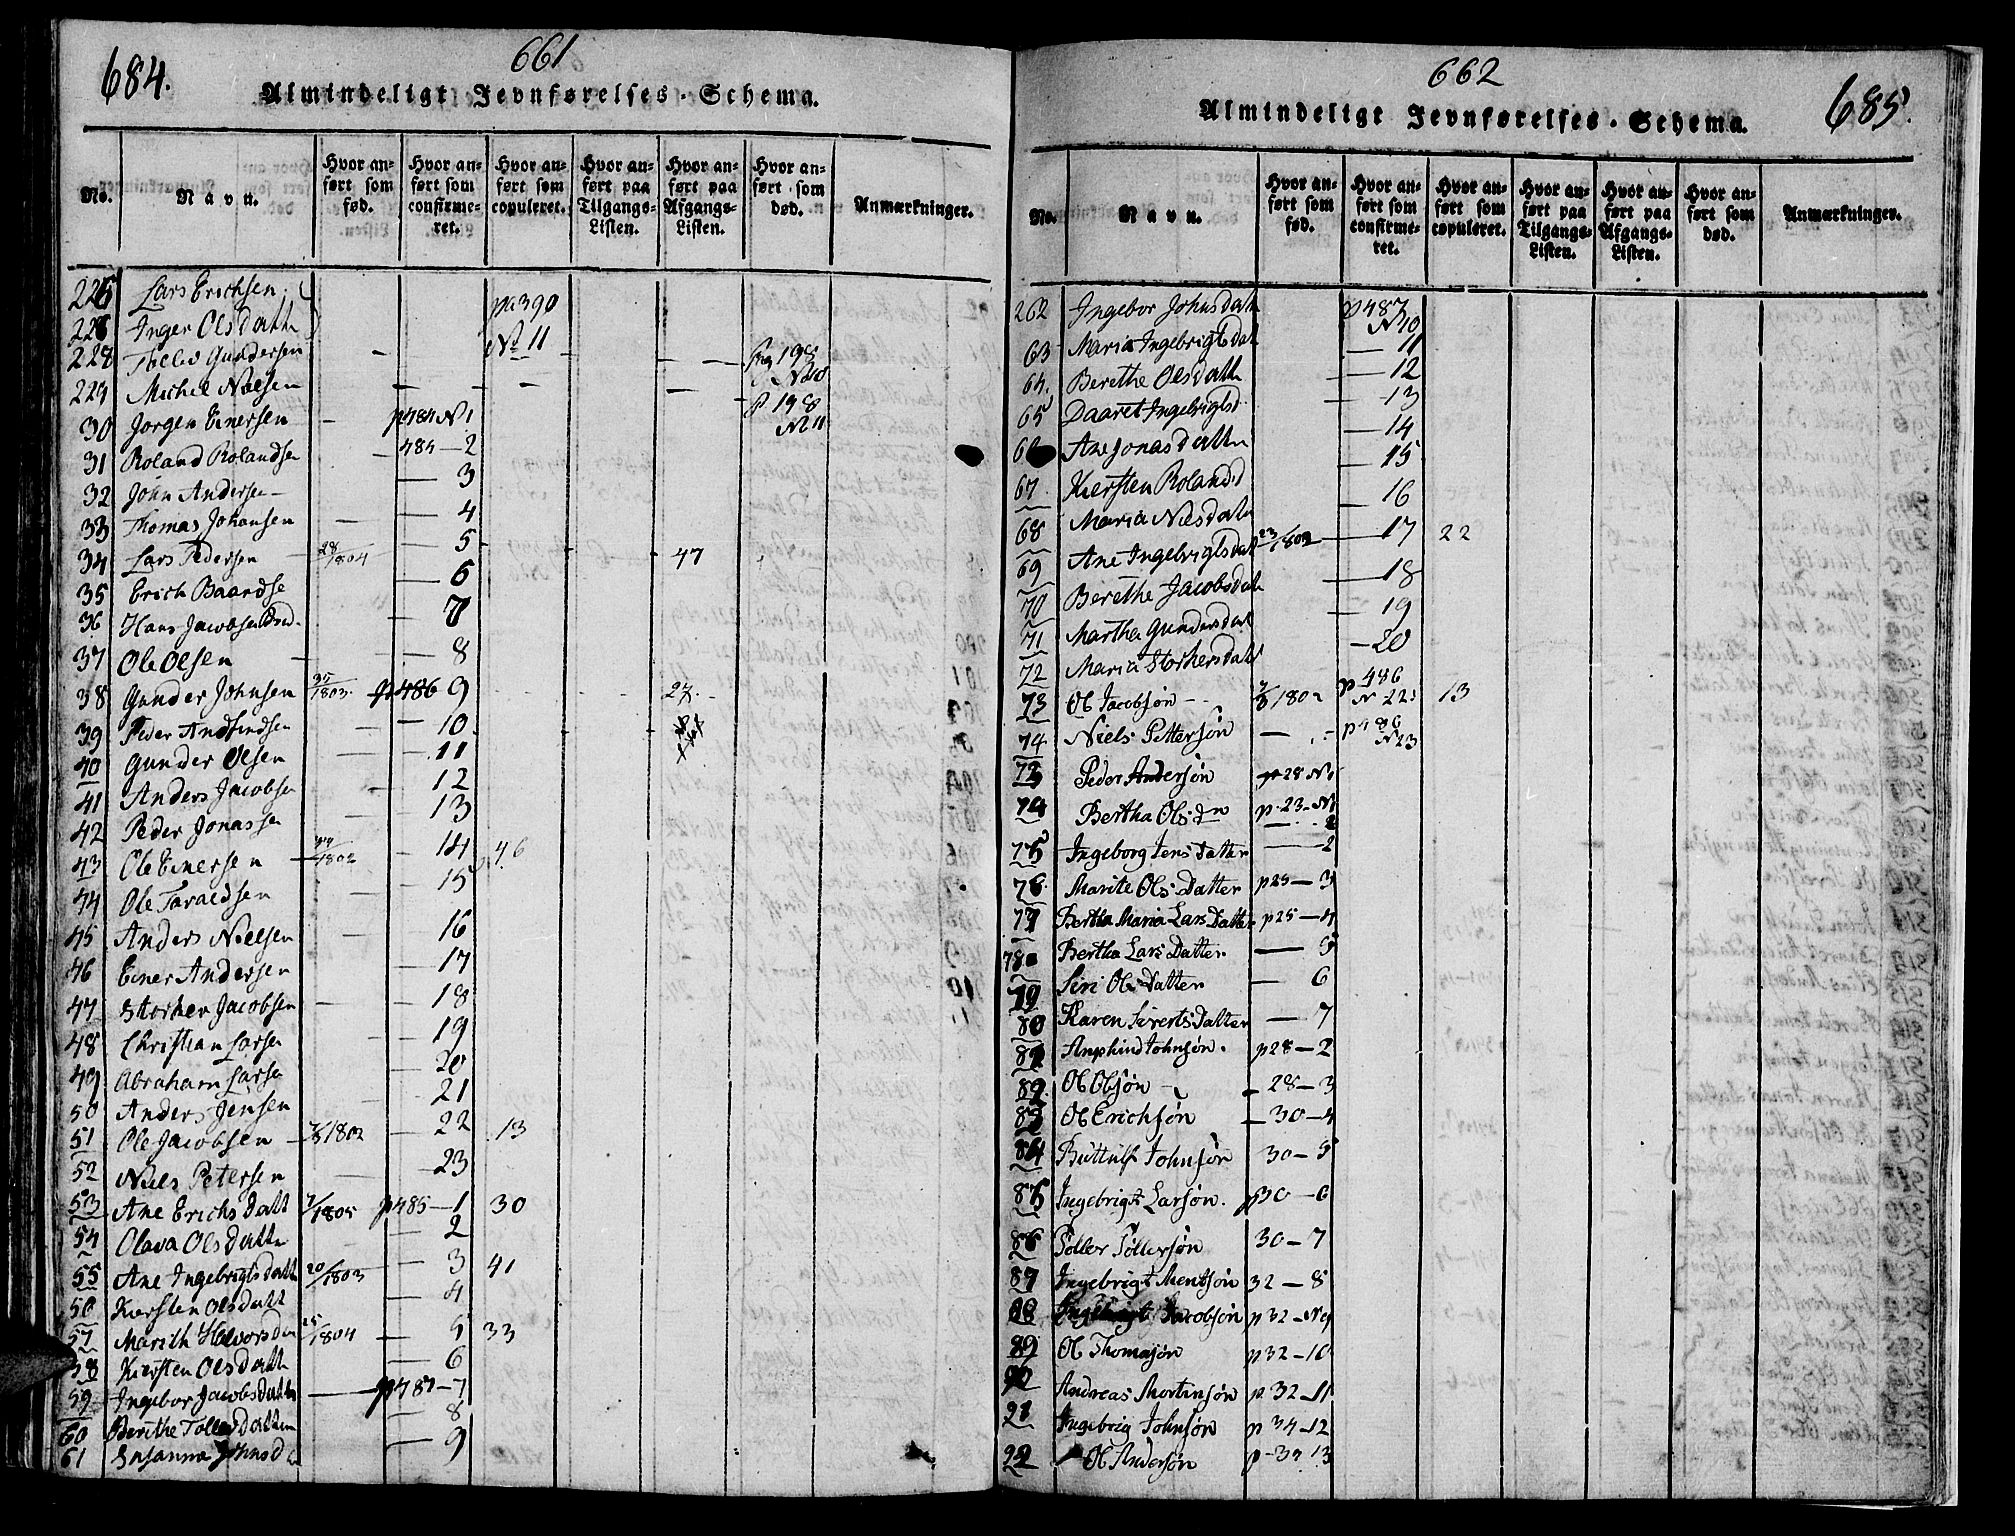 684.
661
Almindeligt Jevnførelses-Schema.
No.
Navn.
Hvor anført som fød.
Hvor anført som confirmeret.
Hvor anført som copuleret.
Hvor anført paa Tilgangs-Listen.
Hvor anført paa Afgangs-Listen.
Hvor anført som død.
Anmærkninger.
226 Lars Erichsen. pa 390
226 Inger Olsdatter No 11
228 Tolles Gundersen - pag 198 No 10
229 Michel Nielsen - - p 198 No 11
30 Jørgen Einersen - p 484 N 1
31 Roland Rolandsen 484 - 2
32 John Andersen - 3
33 Thomas Johansen - 4
34 Lars Pedersen 28/1804 - 5 47
35 Erich Baardse - 6
36 Hans Jacobsen - 7
37 Ole Olsen - 8
38 Gunder Johnsen 37/1803 p 486 9 27.
39 Peder Andfindsen - 10
40 Gunder Olsen - 11
41 Anders Jacobsen 12
42 Peder Jonassen - 13
43 Ole Einersen /1802 - 14 46
44 Ole Taraldsen - 15
45 Anders Nielsen - 16
46 Einer Andersen - 17
47 Storker Jacobsen - 18
48 Christian Larsen 19
49 Abraham Larsen - 20
50 Anders Jensen - 21
51 Ole Jacobsen - /1802 - 22 13
52 Niels Petersen - 23
53 Ane Erichsdatt /1805 p 485 - 1 30
54 Olava Olsdatter 2
55 Ane Ingebrigtsdatt 20/1803 - 3 41
56 Kiersten Olsdatt - 4
57 Marith Halvorsda 25/1804 - 5 33
58 Kiersten Olsdatt - 6
59 Ingebor Jacobsdatter - p 487 - 7
60 Berithe Tollesdatter - 8
61 Susanna Johnsd - 9
662
685.
Almindeligt Jevnførelses-Schema.
No.
Navn.
Hvor anført som fød.
Hvor anført som confirmeret.
Hvor anført som copuleret.
Hvor anført paa Tilgangs-Listen.
Hvor anført paa Afgangs-Listen.
Hvor anført som død.
Anmærkninger.
262 Ingebor Johnsdatt p 487 N 10
63 Maria Ingebrigtsdat - 11
64. Berethe Olsdatt - 12
65 Daaret Ingebrigtsd. - 13
66 Ane Jonasdatter - 14
67 Kiersten Rolandsd - 15
68 Maria Nilsdatter - 16
69 Ane Ingebrigtsdat 23/1802 - 17 22
70 Berethe Jacobsdatt - 18
71 Martha Gundersdat - 19
72 Maria Storkersdatt - 20
73 Ol Jacobsøn - /1802 p 486 N 22 13
74 Niels Pettersøn - p 486 N 23
73 Peder Andersøn p 28 No 1
74 Bertha Ols Dn p. 23 - No 1
75 Ingeborg Jens Datter - 2
76 Marite Ols Datter p 25 - 3
77 Bertha Maria Lars Datter p 25 - 4
78 Bertha Lars Datter - 5
79 Siri Ols Datter - 6
80 Karen Siverts Datter - 7
81 Anphind Johnsøn. p 28 - 2
82 Ol Olsøn - - 28 - 3
83 Ol Erichsøn - 30 - 4
84 Buttulf Johnsøn 30 - 5
85 Ingebrigt Larsøn. p 30 - 6
86 Toller Tollersøn 30 - 7
87 Ingebrigt Mentsøn 32 - 8
88 Jacobsøn p 32 - No 9
89 Ol Thomasøn p 32 - 10
90 Andreas Mortensøn p. 32 - 11
91 Ingebrig Johnsøn p 34 - 12
92 Ol Andersøn p - 34 13